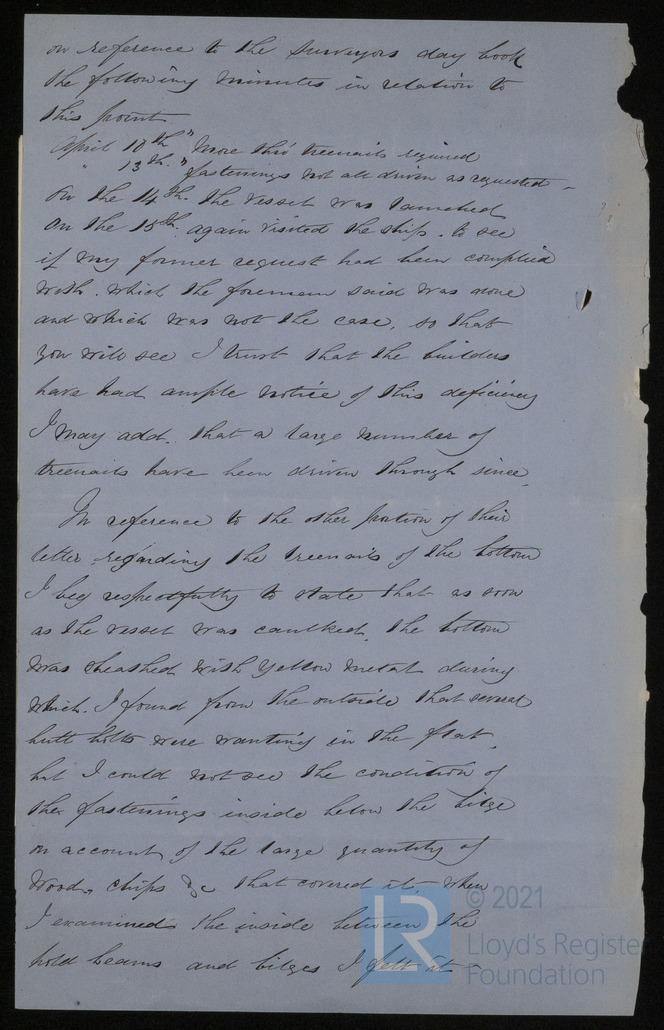 on reference to the Surveyors day book
the following minutes in relation to
this point
April 10th " More thro' treenails required
" 13th. " fastenings not all driven as requested –
On the 14th. the vessel was launched
On the 18th. again visited the ship. to see
if my former request had been complied
with. which the foreman said was done
and which was not the case, so that
you will see I trust that the builders
have had ample notice of this deficiency
I may add. that a large number of
treenails have been driven through since.
In reference to the other portion of their
letter regarding the treenails of the bottom
I beg respectfully to state that as soon
as the vessel was caulked. the bottom
was sheathed with yellow metal during
which. I found from the outside that several
butt bolts were wanting in the flat.
but I could not see the condition of
the fastenings inside below the bilge
on account of the large quantity of
wood, chips &c that covered it, when
I examined the inside between the
hold beams and bilges I felt at
© 2021
LR
Lloyd's Register
Foundation